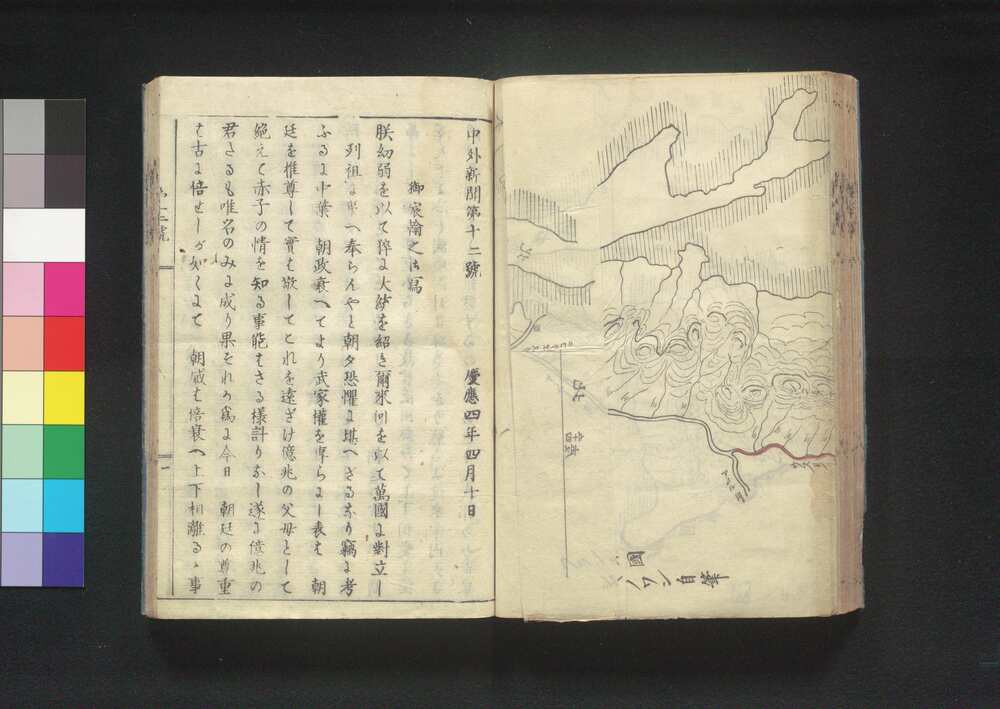 中外新聞第十二號
慶應四年四月十日
御宸翰之御寫
朕幼弱を以て猝に大統を紹き爾来何を以て萬國に對立し
列祖に事へ奉らんやと朝夕恐懼に堪へさるなり竊に考
ふるに中葉 朝政衰へてより武家權を専らにし表は 朝
廷を推尊して實は敬してこれを遠ざけ億兆の父母として
絶えて赤子の情を知る事能はさる様計りなし遂に億兆の
君たるも唯名のみに成り果それか為に今日 朝廷の尊重
は古に倍せしが如くにて 朝威は倍衰へ上下相離るゝ事
北
自筆